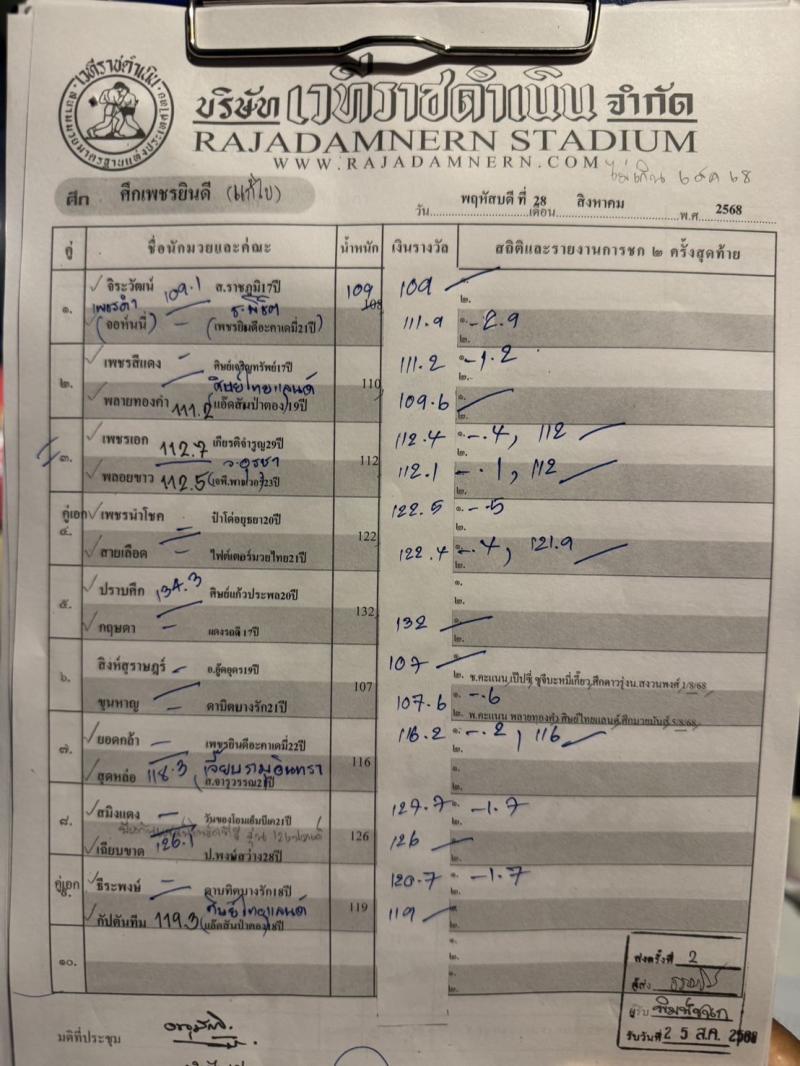 เวทีราชดำเนิน
บริษัท เวทีราชดำเนิน จำกัด
RAJADAMNERN STADIUM
WWW.RAJADAMNERN.COM
ศึก ศึกเพชรยินดี (แก้ไข)
วัน พฤหัสบดี ที่ 28 เดือน สิงหาคม พ.ศ. 2568
คู่ ชื่อนักมวยและคณะ น้ำหนัก เงินรางวัล สถิติและรายงานการชก ๒ ครั้งสุดท้าย
๑. จิระวัฒน์ 109.1 ส.ราชภูมิ17ปี 109 108 109 ๒.
เพชรดำ ช.พิชิต
(จอห์นนี่) (เพชรยินดีอะคาเดมี่21ปี) 111.9 ๑. -2.9 ๒.
๒. เพชรสีแดง ศิษย์เจริญทรัพย์17ปี 110 111.2 ๑. -1.2 ๒.
ศิษย์ไทยแลนด์
พลายทองคำ 111.2 (แอ๊ดสันป่าตอง)19ปี 109.6 ๒.
๓. เพชรเอก 112.7 เกียรติจำรูญ29ปี 112 112.4 ๑. -.4, 112 ๒.
พลอยขาว 112.5 23ปี 112.1 -.1, 112 ๒.
คู่เอก ๔. เพชรนำโชค ป้าโต่อยุธยา20ปี 122 122.5 ๑. -.5 ๒.
สายเลือด ไฟต์เตอร์มวยไทย21ปี 122.4 ๑. -.4, 121.9 ๒.
๕. ปราบศึก 134.3 ศิษย์แก้วประพล20ปี 132 ๑. ๒.
กฤษดา 17ปี 132 ๑. ๒.
๖. สิงห์สุราษฎร์ อ.อู๊ดอุดร19ปี 107 107 ๑.
๒. ช.คะแนน เป๊ปซี่ ซูจีบะหมี่เกี๊ยว,ศึกดาวรุ่งน.สงวนพงศ์ 1/8/68
ขุนหาญ ดาบิตบางรัก21ปี 107.6 ๑. -.6
๒. พ.คะแนน พลายทองคำ ศิษย์ไทยแลนด์,ศึกมวยมันส์ 5/8/68
๗. ยอดกล้า เพชรยินดีอะคาเดมี่22ปี 116 116.2 ๑. -.2, 116 ๒.
เจี๊ยบรามอินทรา
สุดหล่อ 118.3 (ส.จารุวรรณ21ปี ๑. ๒.
๘. สมิงแดง วันของโอมเอ็มบีเค21ปี 126 127.7 ๑. -1.7 ๒.
เฉียบขาด 126.1 ป.พงษ์สว่าง28ปี 126 ๑. ๒.
คู่เอก ธีระพงษ์ ดาบทิตบางรัก18ปี 119 120.7 ๑. -1.7 ๒.
ศิษย์ไทยแลนด์
กัปตันทีม 119.3 (แอ๊ดสันป่าตอง)18ปี 119 ๒.
๑๐. ๑. ๒. ๑. ๒.
ส่งครั้งที่ 2
ผู้ส่ง
ผู้รับ พิมพ์ชนก
รับวันที่ 25 ส.ค. 2568
มติที่ประชุม